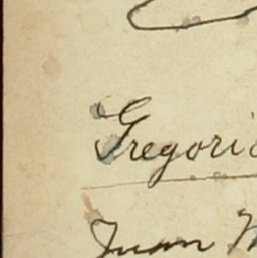 Gregori
Juan